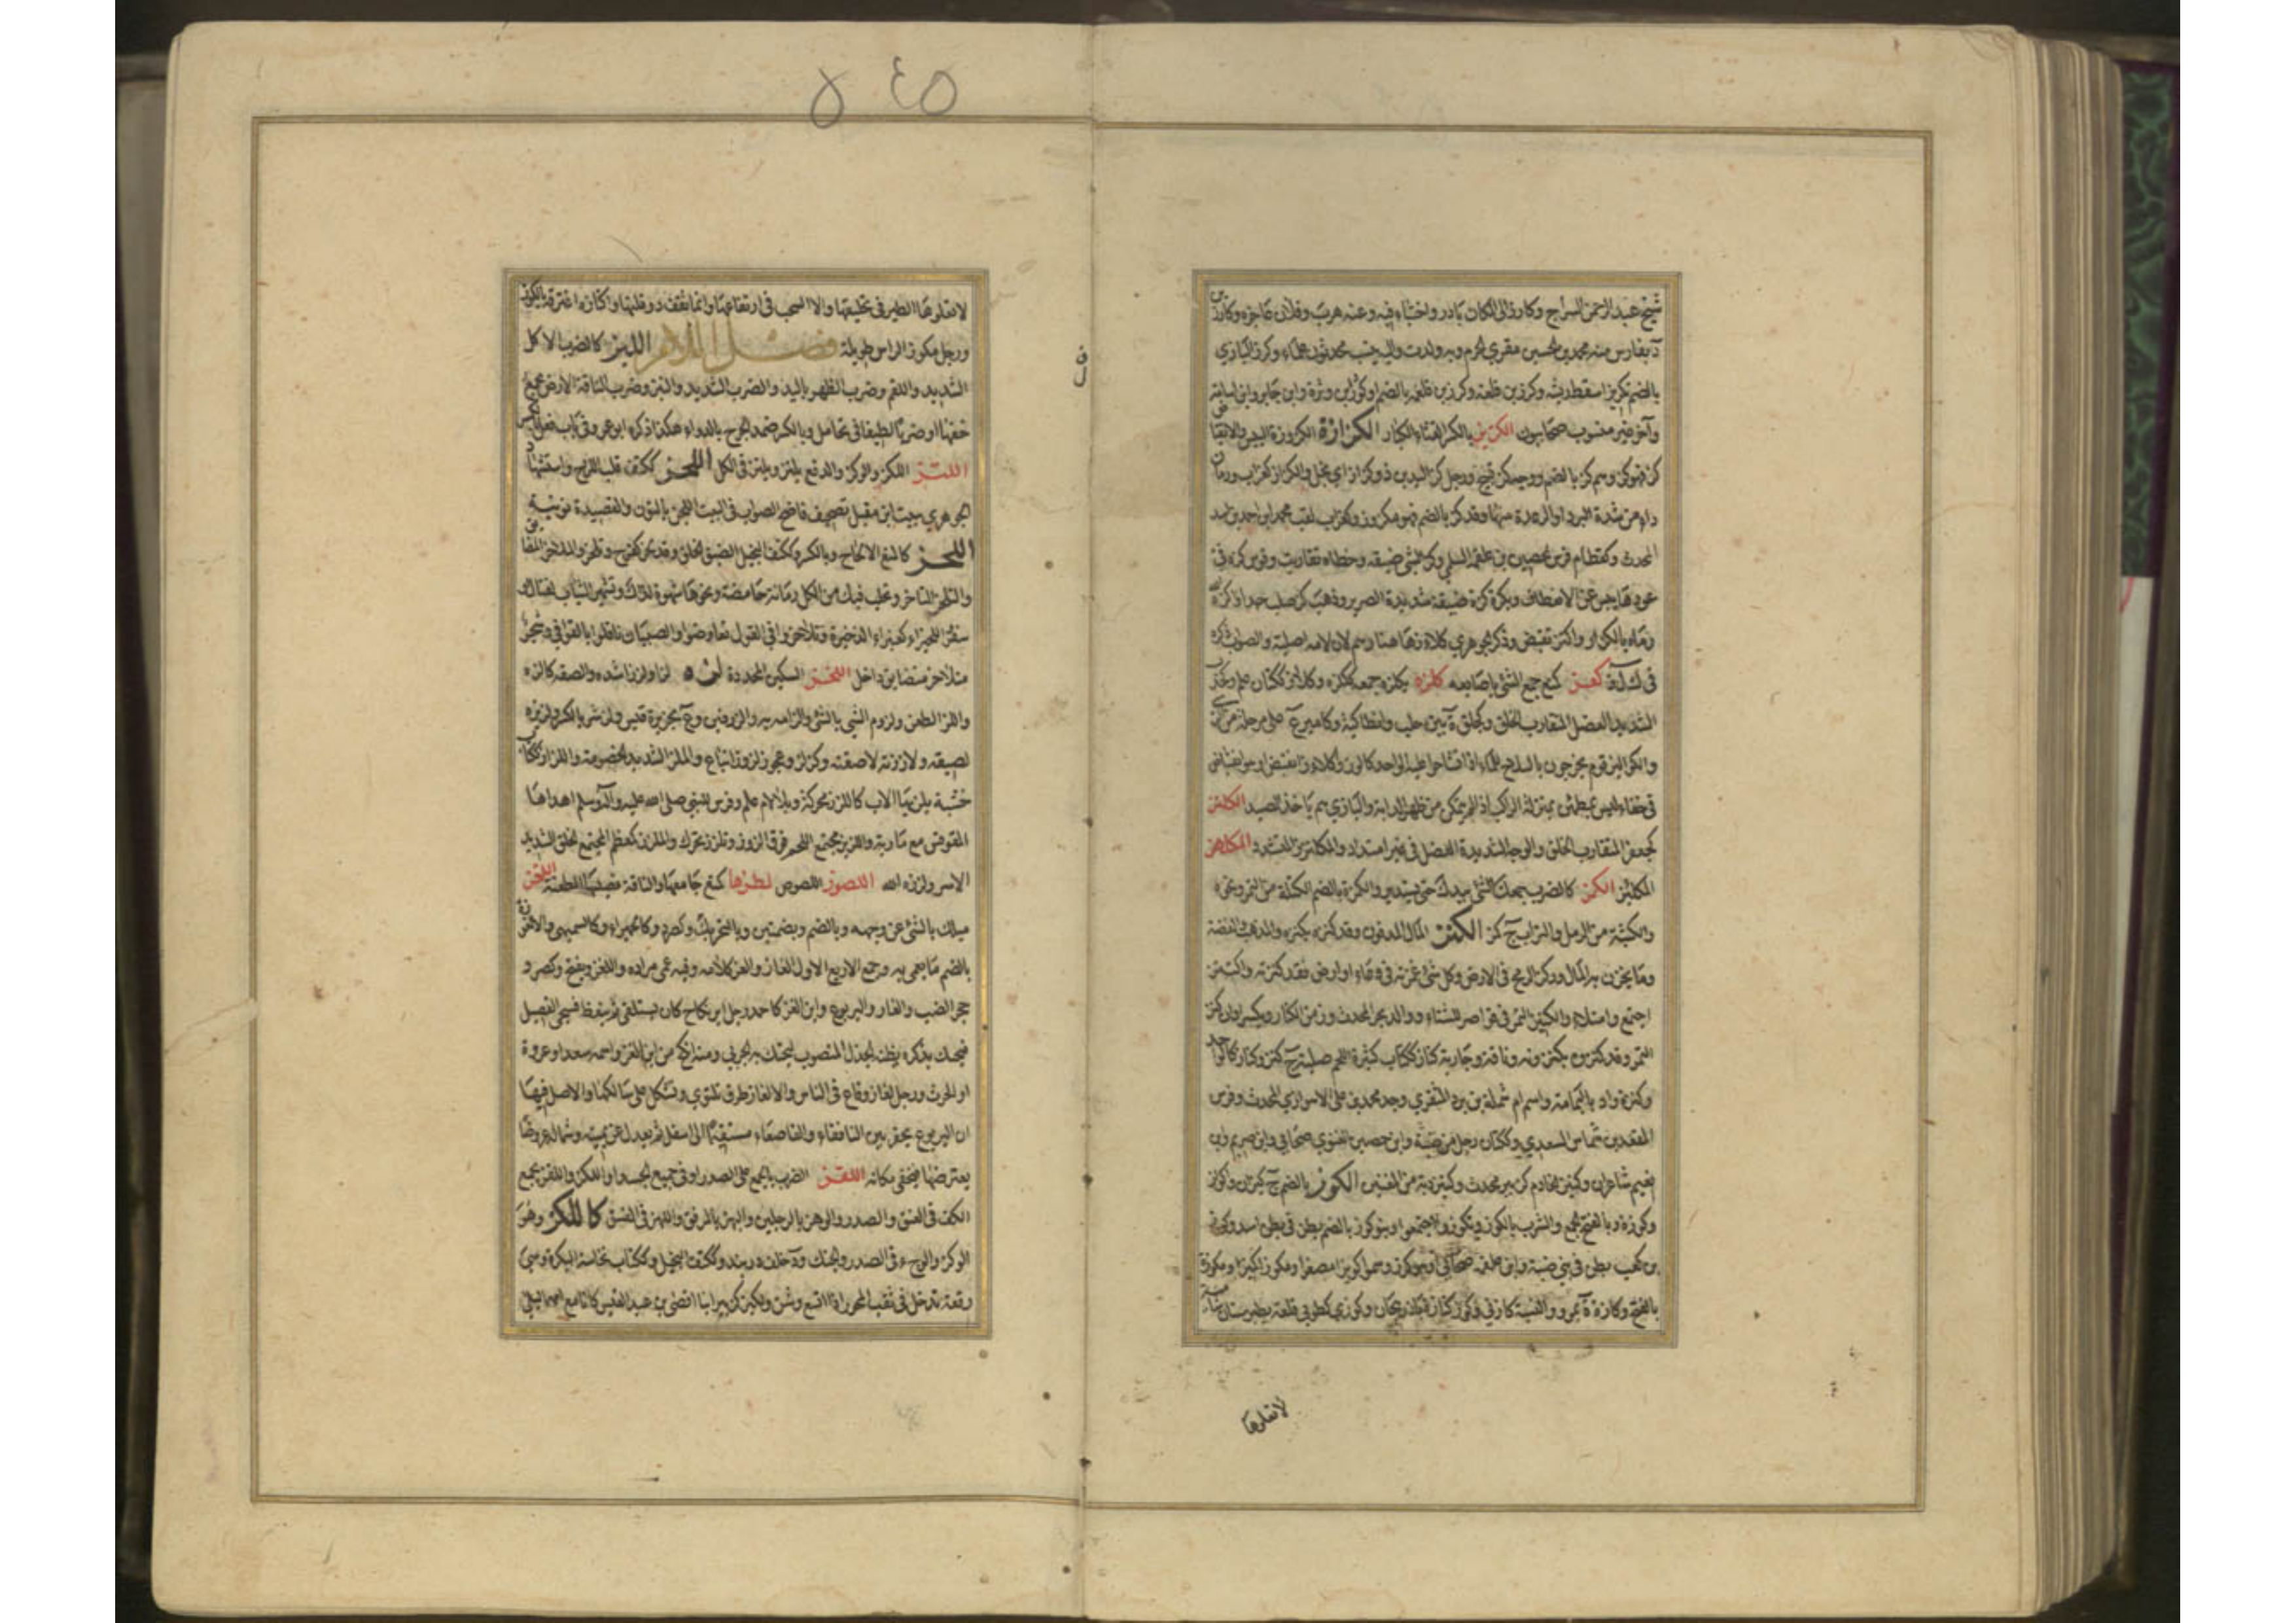 شيخ عبد الرحمن السراج وكارز الى المكان بادر واختباء فيه وعنه هرب وفلان عاجزه وكارزين
د بفارس منه محمد بن الحسين مقري الحرم وبه ولدت واليه ينسب محدثون علماء وكرز البازي
بالضم تكريز اسقط ريشه وكرز بن علقمة بالضم او كرز بن وبرة وابن جابر وابن اسامة
وآخر غير منسوب صحابيون الكربز بالكسر القثاء الكبار الكزازة الكزوزة اليبس والانقباض
كز فهو كز وهم كز بالضم ووجه كز قبيح ورجل كز اليدين ذو كزاز اي بخل والكزاز كغراب ورمان
داء من شدة البرد او الرعدة منها وقد كز بالضم فهو مكزوز وكغراب لقب محمد بن احمد بن اسد
المحدث وكقطام فرس الحصين بن علقمة السلمي وكز الشئ ضيقه وخطاه تقاربت وقوس كزة في
عودها يبس عن الانعطاف وبكرة كزة ضيقة شديدة الصرير وذهب كز صلب جدا
رماه بالكزاز واكتز تقبض وذكر الجوهري كلاز هاهنا وهم لان لامه اصلية والصواب ذكره
في ك ل ز كعز كمنع جمع الشئ باصابعه كلزه يكلزه جمعه ككلزه وكلاز ككتان علم
الشديد العضل المتقارب الخلق وكجلق ة بين حلب وانطاكية وكامير ع على مرحلة من
والكوالز قوم يخرجون بالسلاح للماء اذا تشاحوا عليه الواحد كالوز واكلاز انقبض او هو انقباض
في جفاء ليس بمطمئن بمنزلة الراكب اذا لم يتمكن من ظهر الدابة والبازي هم ياخذ الصيد الكلنز
كجعفر المتقارب الخلق والوجه الشديدة العضل في غير امتداد والمكلئز المتشدد المكلهز
المكلئز الكمز كالضرب جمعك الشئ بيدك حتى يستدير والكمزة بالضم الكتلة من التمر ونحوه
والكثبة من الرمل والتراب ج كمز الكنز المال المدفون وقد كنزه يكنزه والذهب والفضة
وما يحرز به المال وركز الرمح في الارض وكل شئ غمزته في وعاء او ارض فقد كنزته واكتنز
اجتمع وامتلاء والكنيز التمر في قواصر للشتاء ووالد بحر المحدث وزمن الكناز ويكسر اوان كنز
التمر وقد كنزوه يكنزونه وناقة وجارية كناز ككتاب كثيرة اللحم صلبة ج كنز وكناز كالواحد
وكنزة واد باليمامة واسم ام شملة بن برد المنقري وجد محمد بن علي الاسواري المحدث وفرس
المقعد بن شماس السعدي وككتان رجل من ضبة وابن حصين الغنوي صحابي وابن صريم وابن
نفيع شاعران وكنيز الخادم كزبير محدث وكنيز دبة من المغنين الكوز بالضم ج كيزان واكواز
وكوزة وبالفتح الجمع والشرب بالكوز وتكوزوا اجتمعوا وبنو كوز بالضم بطن في بني اسد وكوز
بن كعب بطن في بني ضبة وابن علقمة صحابي او هو كرز وسموا كويزا مصغرا ومكوزا كمنبر ومكوزة
بالفتح وكازة ة بمرو والنسبة كازقي وكوزكنان ة باذربيجان وكوزى كطوبى قلعة بطبرستان
لا تعلوها
ف
ل
٥٤٥
لا تعلوها الطير في تحليقها ولا السحب في ارتفاعها وانما تقف دون قلتها واكتازه اغترفه بالكوز
ورجل مكوز الراس طويله فصل اللام اللبز كالضرب الاكل
الشديد واللقم وضرب الظهر باليد والضرب الشديد والنبز وضرب الناقة الارض بجمع
خفها او ضربا لطيفا في تحامل وبالكسر ضمد الجرح بالدواء هكذا ذكره ابو عمرو في باب فعل بالكسر
اللتز اللكز والوكز والدفع يلتز ويلتز في الكل اللجز ككتف قلب اللزج واستشهاد
الجوهري ببيت ابن مقبل تصحيف فاضح الصواب في البيت اللجن بالنون والقصيدة نونية
اللحز كالمنع الالحاح وبالكسر وككتف البخيل الضيق الخلق وقد لحز كفرح وتلحز والملاحز المضايق
والتلحز التاخر وتحلب فيك من اكل رمانة حامضة ونحوها شهوة لذلك وتشمير الثياب لقتال او
سفر اللحيزاء كغبيراء الذخيرة وتلاحزوا في القول تعاوضوا والصبيان ناقلوا بالقوافي وشجر
متلاحز متضايق داخل اللخز السكين المحددة لزه لزا ولززا شده والصقه كالزه
واللز الطعن ولزوم الشئ بالشئ والزامه به والزرفين وع بجزيرة قيس ولز شر بالكسر ولزيزه
لصيقه ولاززته لاصقته وكز لز وعجوز لزوز اتباع والملز الشديد الخصومة واللزاز ككتاب
خشبة يلز بها الباب كاللزز محركة وبلا لام علم وفرس للنبي صلى الله عليه وآله وسلم اهداها
المقوقس مع مارية واللزيز مجتمع اللحم فوق الزور وتلزز تحرك والملزز كمعظم المجتمع الخلق الشديد
الاسر ولززه الله اللصوز اللصوص لطزها كمنع جامعها والناقة فصيلها لطعته اللغز
ميلك بالشئ عن وجهه وبالضم وبضمتين وبالتحريك وكصرد وكالحميراء وكالسميهى والالغوزة
بالضم ما يعمى به وجمع الاربع الاول الغاز والغز كلامه وفيه عمى مراده واللغز ويفتح وكصرد
جحر الضب والفار واليربوع وابن الغز كاحمد رجل اير نكاح كان يستلقي ثم ينعظ فيجئ الفصيل
فيحتك بذكره يظنه الجذل المنصوب ليحتك به الجربى ومنه انكح من ابن الغز واسمه سعد او عروة
او الحرث ورجل لغاز وقاع في الناس والالغاز طرق تلتوي وتشكل على سالكها والاصل فيها
ان اليربوع يحفر بين النافقاء والقاصعاء مستقيما الى اسفل ثم يعدل عن يمينه وشماله عروضا
يعترضها فيخفى مكانه اللقز الضرب بالجمع على الصدر او في جميع الجسد او اللكز واللقز بجمع
الكف في العنق والصدر والوهز بالرجلين والبهز بالمرفق واللهز في العنق كاللكز وهو
الوكز والوجء في الصدر والحنك ود خلف دربند وككتف البخيل وككتاب نخاسة البكرة وهي
رقعة تدخل في ثقب المحور اذا اتسع وشن ولكيز كزبير ابنا افصى بن عبد القيس كانا مع امهما ليلى